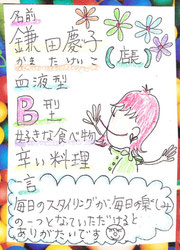 名前
鎌田慶子
かまたけいこ
(店長)
血液型
B型
好きな食べ物
辛い料理
一言
毎日のスタイリングが、毎日の楽しみ
の一つとなっていただけると
ありがたいです